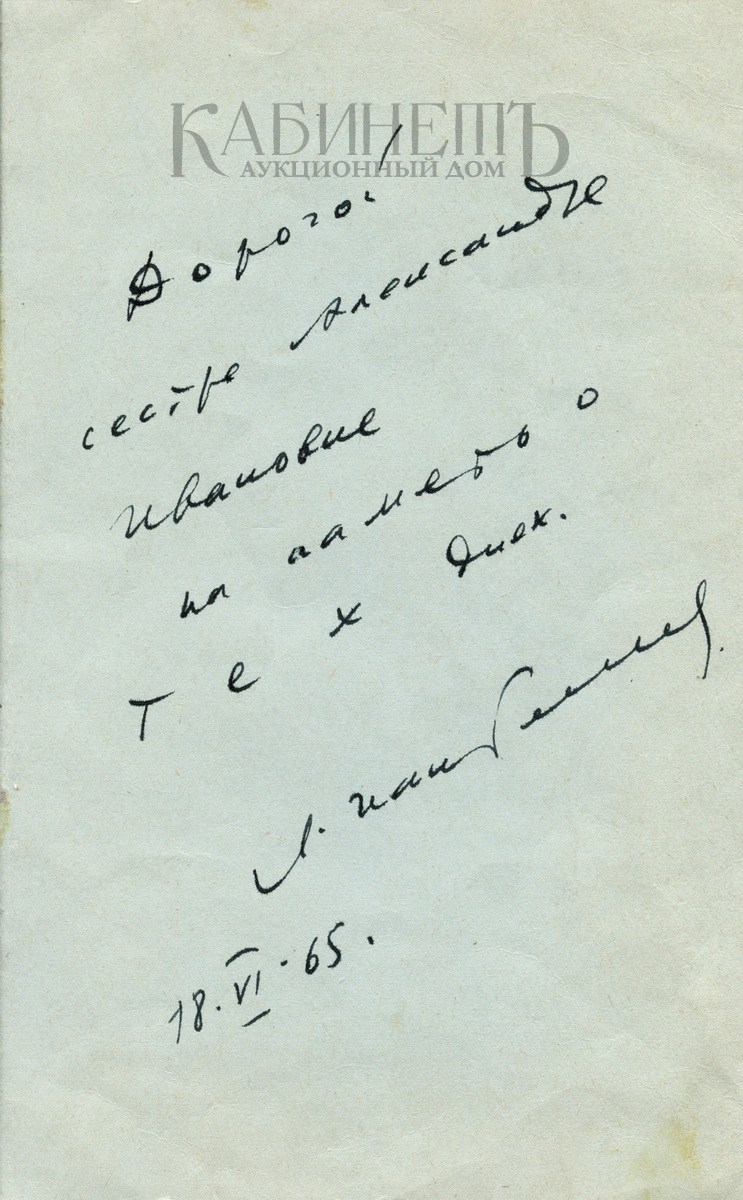 КАБИНЕТЪ
АУКЦИОННЫЙ ДОМ
Дорогой
сестре Александре
Ивановне
на память о
тех днях.
Л. Пантелеев.
18.VI.65.